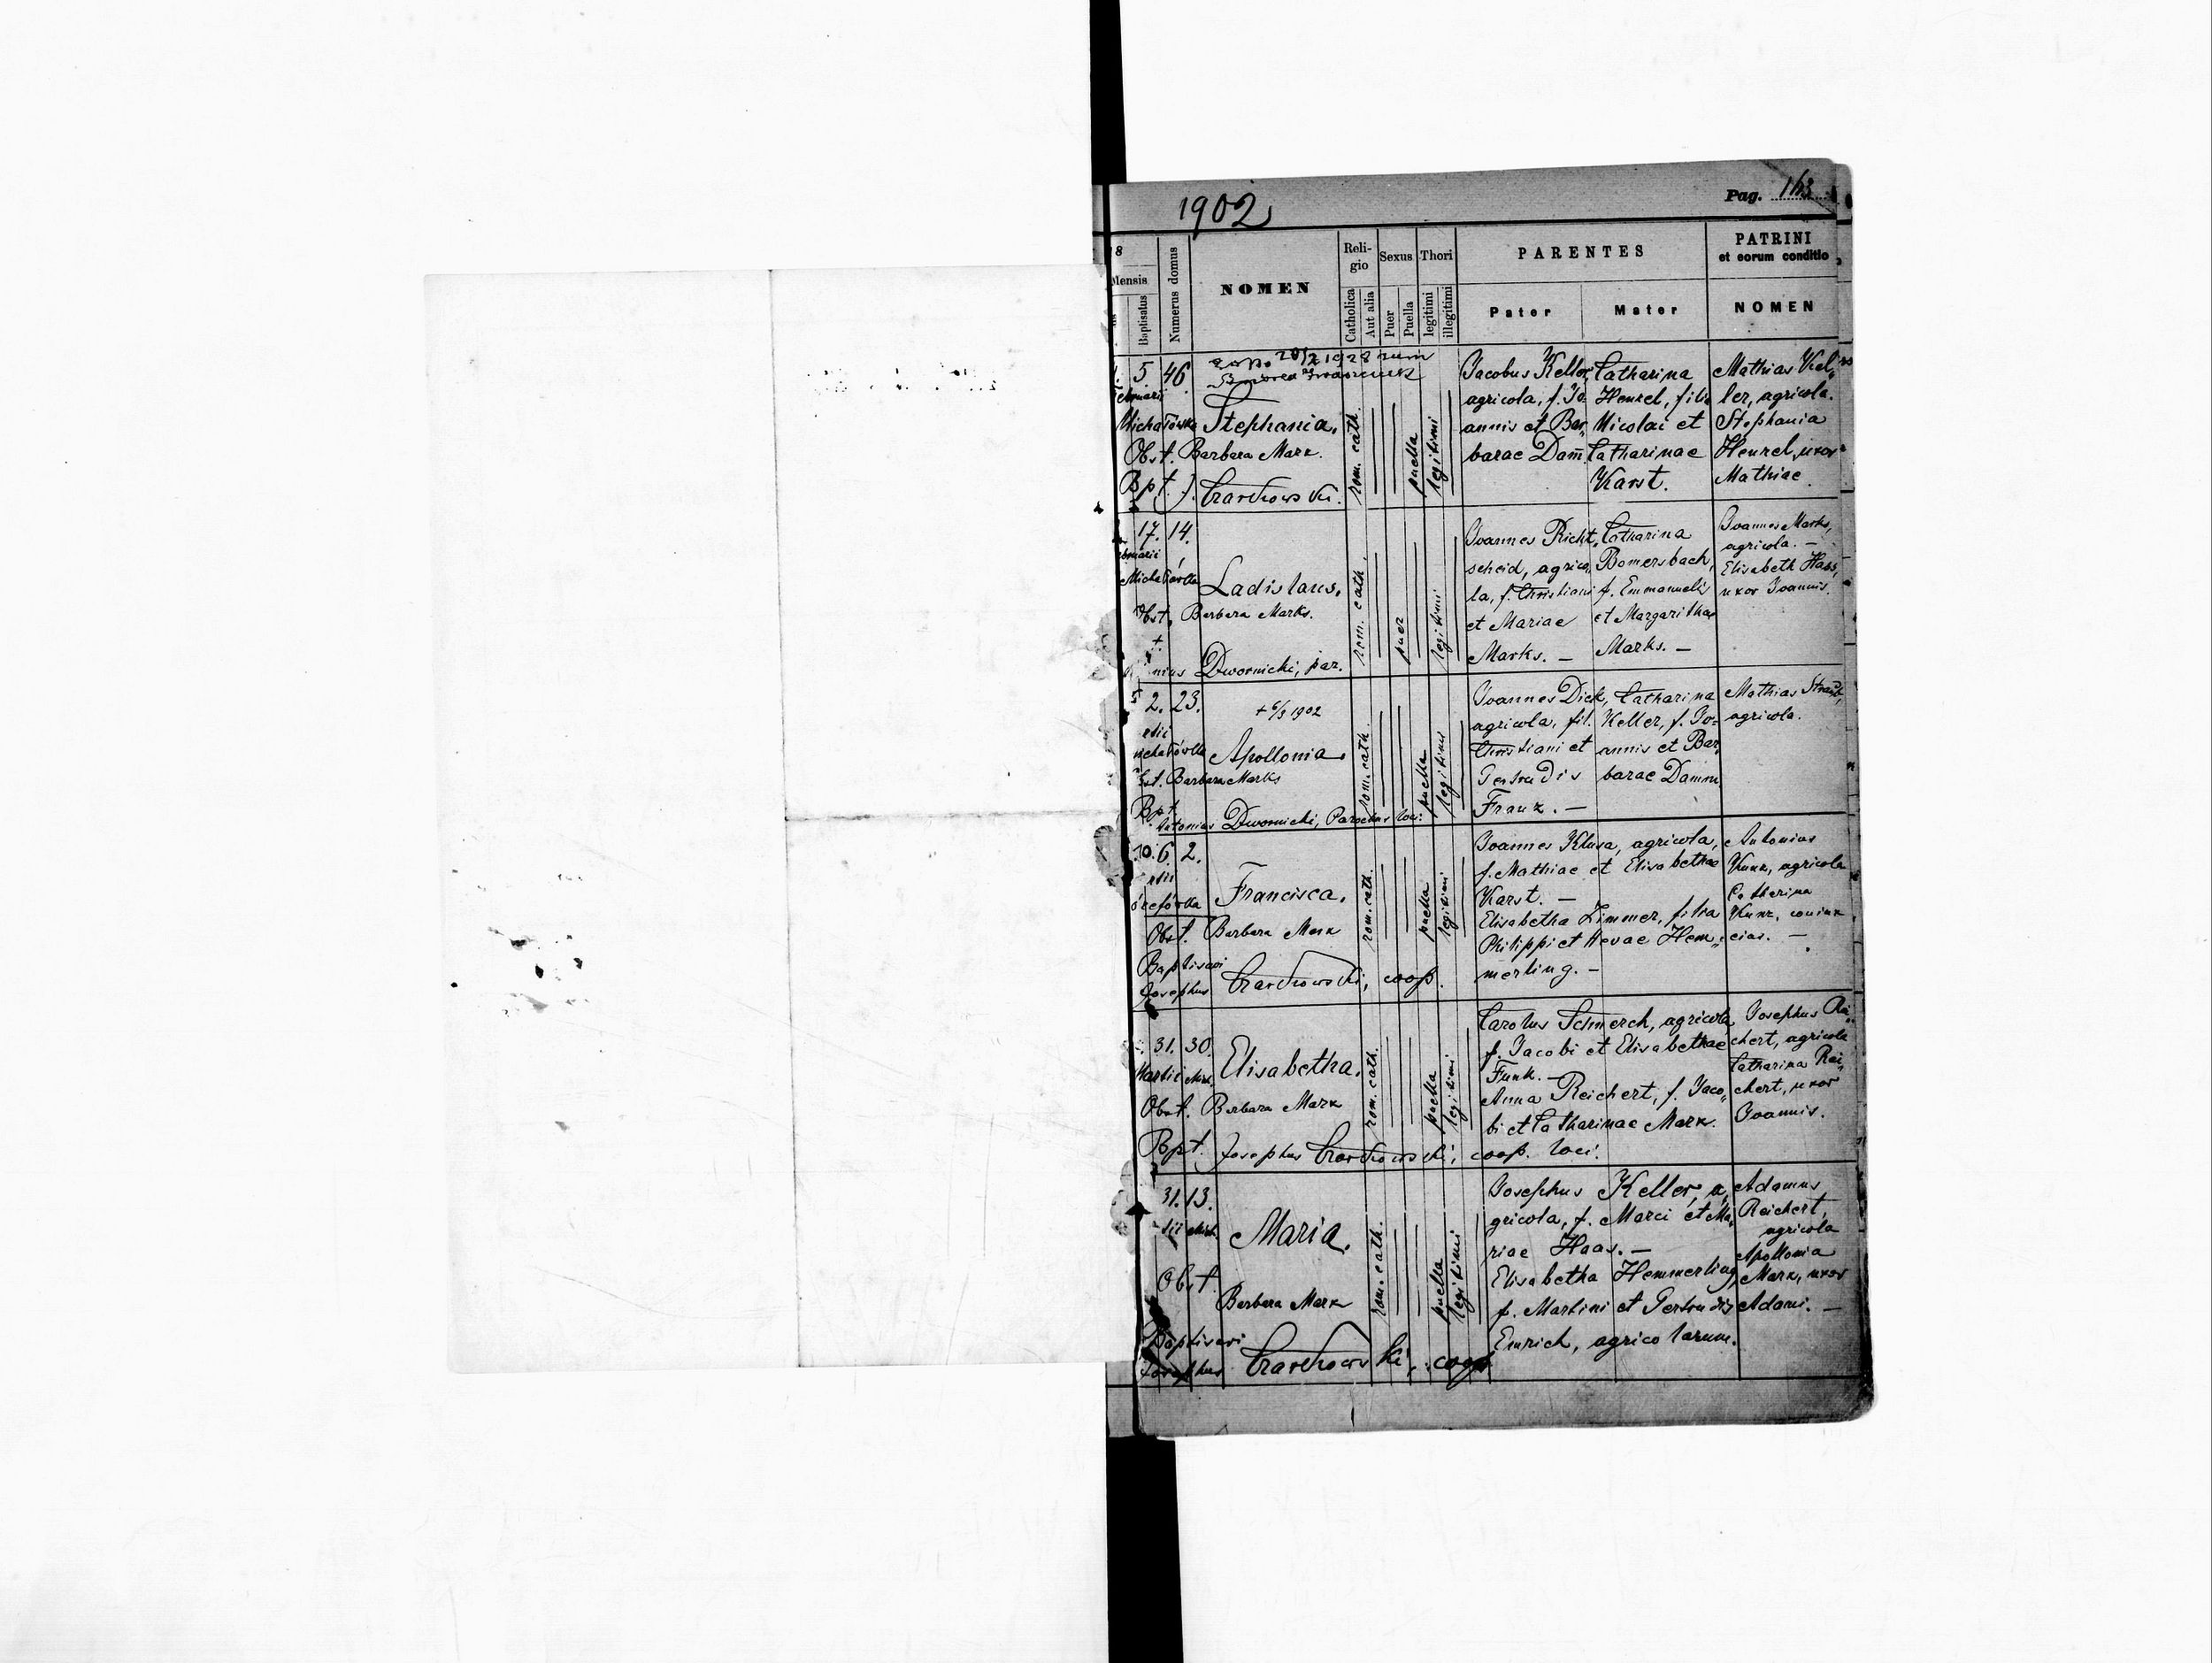 1902
Pag. 163
8
Mensis
Baptisatus
Numerus domus
NOMEN
Reli-
gio
Catholica
Aut alia
Sexus
Puer
Puella
Thori
legitimi
illegitimi
PARENTES
Pater
Mater
PATRINI
et eorum conditio
NOMEN
5. 46
Michałówka
Stephania.
Obst. Barbara Mark.
Bpt. J. Czarkowski.
rom. cath.
puella
legitimi
Jacobus Keller,
agricola, f. Jo-
annis et Bar-
barae Dam̄
Catharina
Henzel, filia
Nicolai et
Catharinae
Karst.
Mathias Kel-
ler, agricola.
Stephania
Henzel, uxor
Mathiae.
17. 14.
Ladislaus.
Obst. Barbara Marks.
Dwornicki, par.
rom. cath.
puer
legitimi
Joannes Richt-
scheid, agrico-
la, f. Christiani
et Mariae
Marks. —
Catharina
Bomersbach,
f. Emmanuelis
et Margarithae
Marks. —
Joannes Marks,
agricola. —
Elisabeth Haas,
uxor Joannis.
2. 23.
+ 6/3 1902
Apollonia.
Obst. Barbara Marks
Bpt.
Antonius Dwornicki, Parochus loci.
rom. cath.
puella
legitimi
Joannes Dick,
agricola, fil.
Christiani et
Gertrudis
Franz. —
Catharina
Keller, f. Jo-
annis et Bar-
barae Damm
Mathias Straub,
agricola.
6. 2.
Francisca.
Obst. Barbara Mark
Baptisavi
Josephus Czarkowski, coop.
rom. cath.
puella
legitimi
Joannes Klusa, agricola,
f. Mathiae et Elisabethae
Karst. —
Elisabetha Zimmer, filia
Philippi et Hevae Hem-
merling. —
Antonius
Kunz, agricola
Catherina
Kunz, coniux
eius. —
31. 30.
Martii
Elisabetha.
Obst. Barbara Mark
Bpt. Josephus Czarkowski, coop. loci.
rom. cath.
puella
legitimi
Carolus Schmerch, agricola,
f. Jacobi et Elisabethae
Funk. —
Anna Reichert, f. Jaco-
bi et Catharinae Mark.
Josephus Rei-
chert, agricola
Catharina Rei-
chert, uxor
Joannis.
31. 13.
Maria.
Obst.
Barbara Mark
Baptisavi
Josephus Czarkowski, coop.
rom. cath.
puella
legitimi
Josephus Keller, a-
gricola, f. Marci et Ma-
riae Haas. —
Elisabetha Hemmerling,
f. Martini et Gertrudis
Emrich, agricolarum.
Adamus
Reichert,
agricola
Apollonia
Mark, uxor
Adami. —